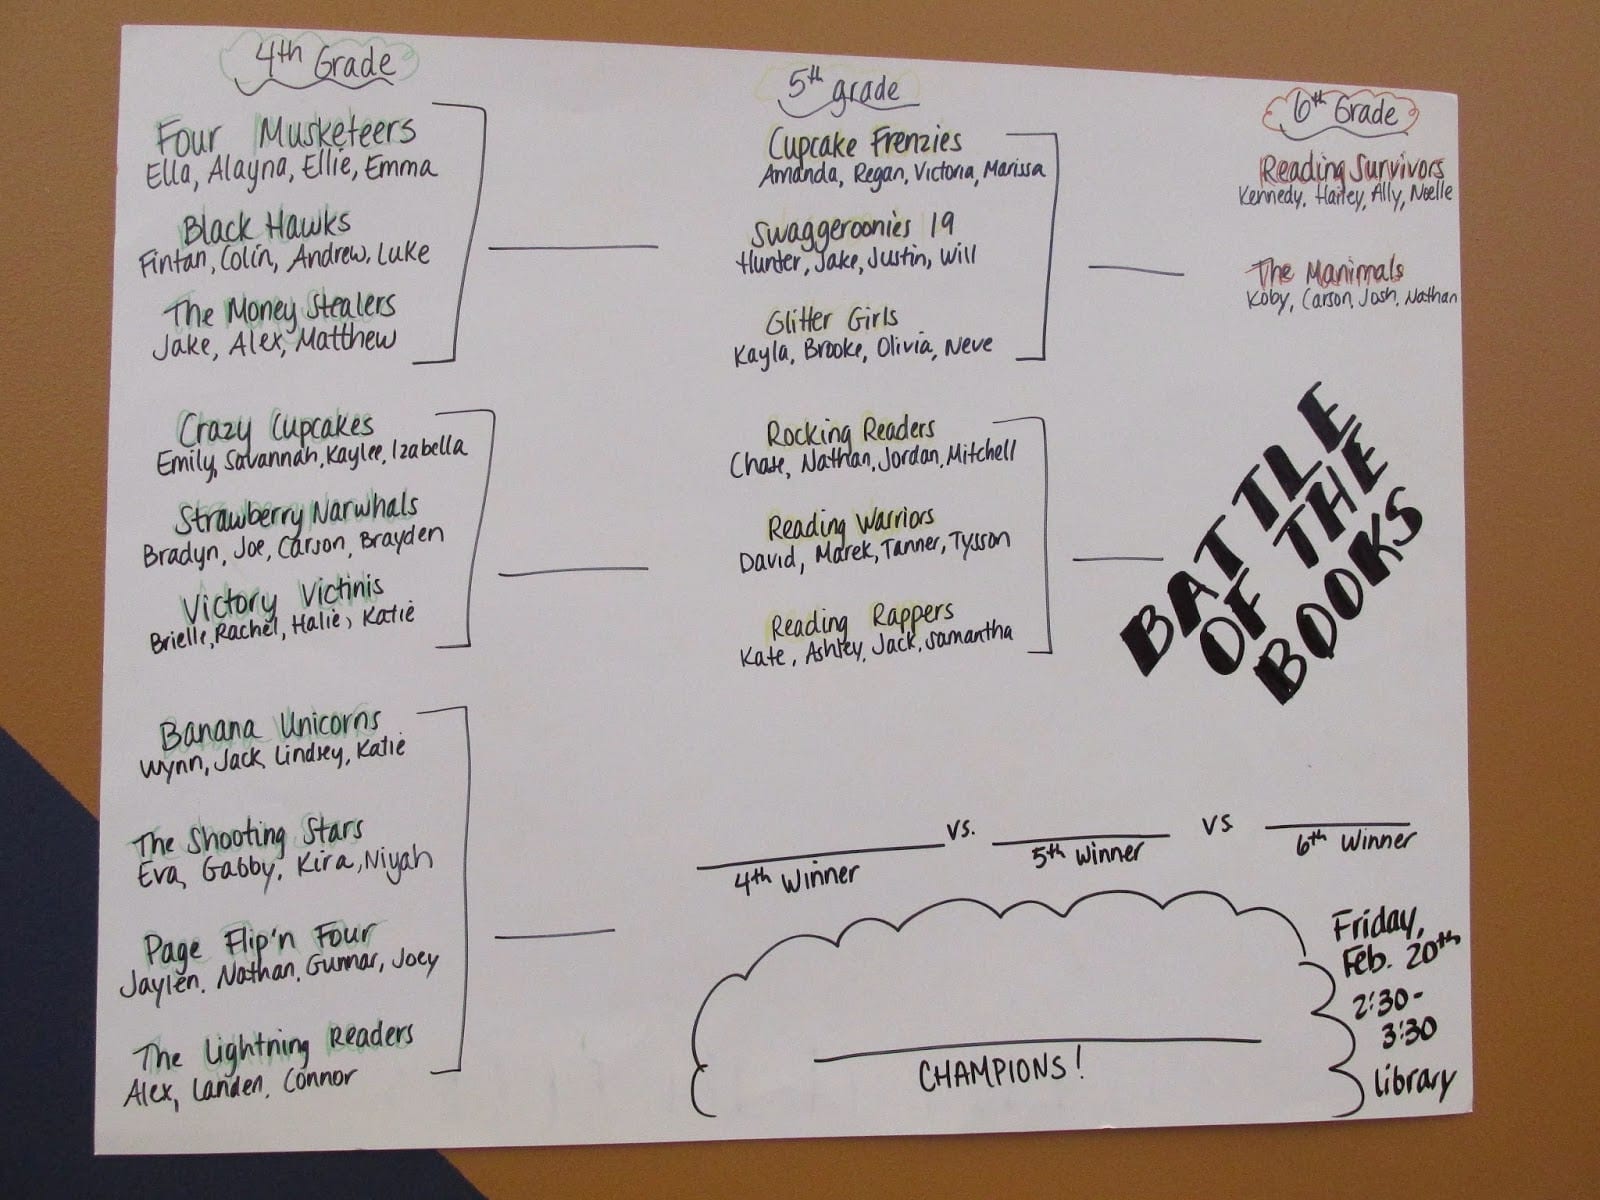 4th Grade
Four Musketeers
Ella, Alayna, Ellie, Emma
Black Hawks
Fintan, Colin, Andrew, Luke
The Money Stealers
Jake, Alex, Matthew
Crazy Cupcakes
Emily, Savannah, Kaylee, Izabella
Strawberry Narwhals
Bradyn, Joe, Carson, Brayden
Victory Victinis
Brielle, Rachel, Halie, Katie
Banana Unicorns
Wynn, Jack, Lindsey, Katie
The Shooting Stars
Eva, Gabby, Kira, Niyah
Page Flip'n Four
Jaylen, Nathan, Gunnar, Joey
The Lightning Readers
Alex, Landen, Connor
5th grade
Cupcake Frenzies
Amanda, Regan, Victoria, Marissa
Swaggeroonies 19
Hunter, Jake, Justin, Will
Glitter Girls
Kayla, Brooke, Olivia, Neve
Rocking Readers
Chase, Nathan, Jordan, Mitchell
Reading Warriors
David, Marek, Tanner, Tysson
Reading Rappers
Kate, Ashley, Jack, Samantha
6th Grade
Reading Survivors
Kennedy, Hailey, Ally, Noelle
The Manimals
Koby, Carson, Josh, Nathan
BATTLE
OF THE
BOOKS
vs. vs
4th Winner 5th Winner 6th Winner
CHAMPIONS!
Friday,
Feb. 20th
2:30-
3:30
Library